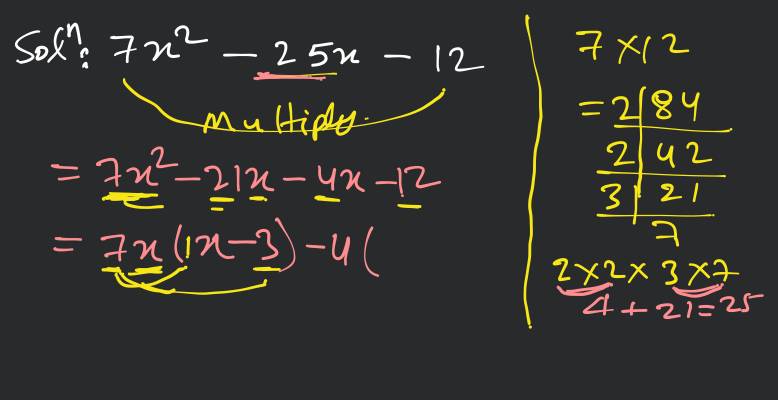 Solⁿ: 7x² - 25x - 12
Multiply.
= 7x² - 21x - 4x - 12
= 7x(1x - 3) - 4(
7 × 12
= 2|84
2|42
3|21
7
2×2×3×7
4 + 21 = 25